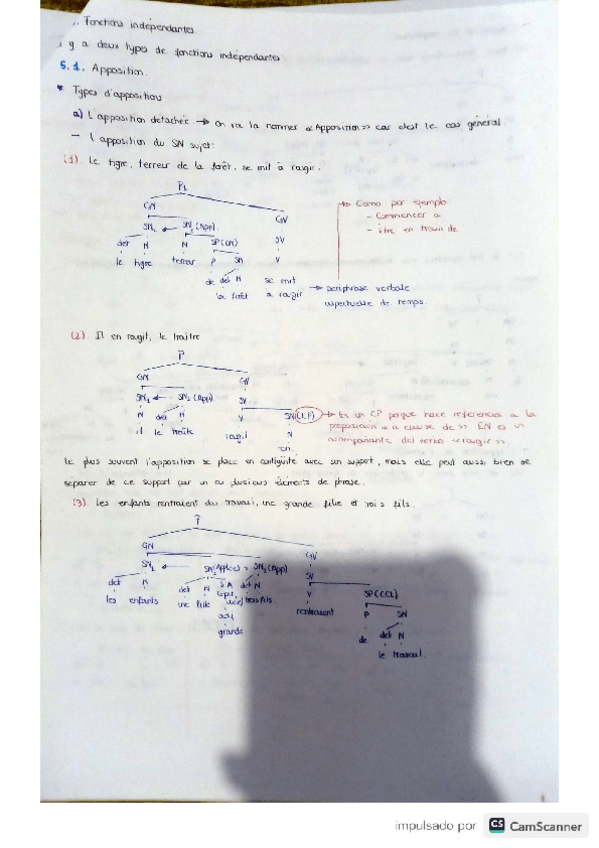 Fonctions indépendantes.
y a deux types de fonctions indépendantes
5.1. Apposition.
* Types d'apposition
a) L'apposition détachée → On va la nommer «Apposition» car c'est le cas général.
- l'apposition du SN sujet:
(1). Le tigre, terreur de la forêt, se mit à rougir.
P1
GN GV
SN1 ← SN2 (App). SV
det N N SP(CN) V
le tigre terreur P SN se mit
de det N à rougir
la forêt
→ Como por ejemplo
- Commencer a
- être en train de
→ périphrase verbale
aspectuelle de temps.
(2). Il en rougit, le traître
P
GN GV
SN1 ← SN2 (App) SV
N det N V SN(CCP)
il le traître rougit N
en
→ Es un CP porque hace referencia a la
preposición «à cause de» EN es un
acompañante del verbo «rougir»
le plus souvent l'apposition se place en contiguïté avec son support, mais elle peut aussi bien se
séparer de ce support par un ou plusieurs éléments de phrase.
(3) Les enfants rentraient du travail, une grande fille et trois fils.
P
GN GV
SN1 ← SN2 SN3 (App) SV
det N det N SA det N V SP(CCL)
les enfants une fille trois fils rentraient P SN
adj de det N
grande le travail.
impulsado por CS CamScanner